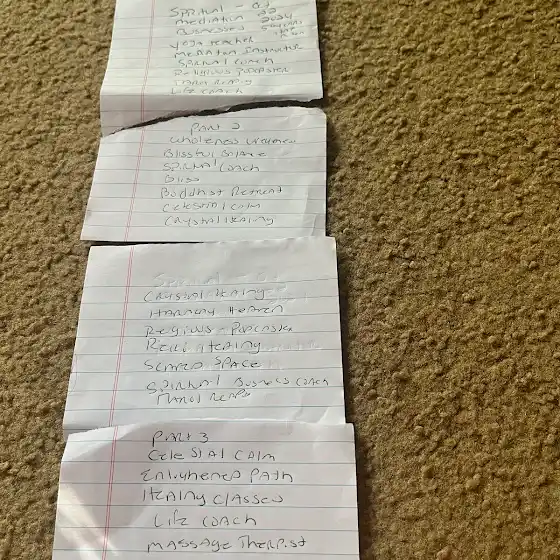 Spiritual - 
Mediation
Businesses
Yoga teacher
Mediation Instructor
Spiritual coach
Religious Podcaster
Tarot Reading
Life coach
Part 2
Wholeness
Blissful Balance
Spiritual coach
Bliss
Boddhist Retreat
Celestial calm
Crystal Healing
Crystal Healing
Harmony Heaven
Religius - Podcaster
Reiki Healing
Scared Space
Spiritual Business coach
Tarot Reader
Part 3
Celestial Calm
Enlighened Path
Healing classes
Life coach
Massage Therpist